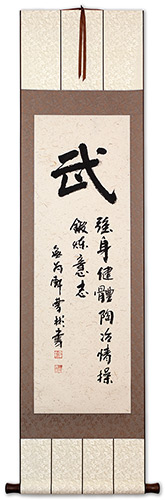 武
强身健體陶冶情操
鍛炼意志